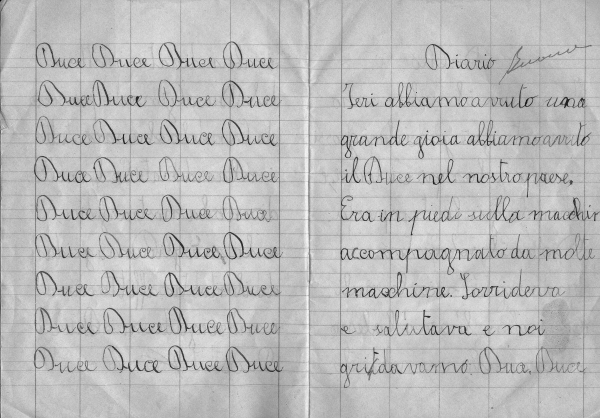 Duce Duce Duce Duce
Duce Duce Duce Duce
Duce Duce Duce Duce
Duce Duce Duce Duce
Duce Duce Duce Duce
Duce Duce Duce Duce
Duce Duce Duce Duce
Duce Duce Duce Duce
Duce Duce Duce Duce
Diario
Ieri abbiamo avuto una
grande gioia abbiamo avuto
il Duce nel nostro paese.
Era in piedi sulla macchin
accompagnato da molte
maschine. Sorrideva
e salutava e noi
gridavamo: Duce, Duce